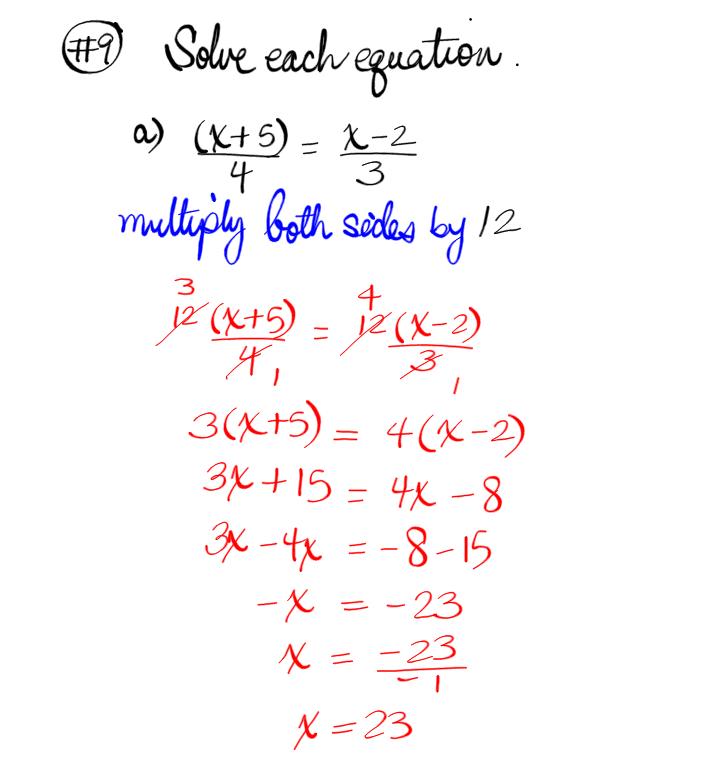 #9 Solve each equation.
a) (x+5)/4 = x-2/3
multiply both sides by 12
3 4
12(x+5)/4 1 = 12(x-2)/3 1
3(x+5) = 4(x-2)
3x+15 = 4x-8
3x-4x = -8-15
-x = -23
x = -23/-1
x = 23